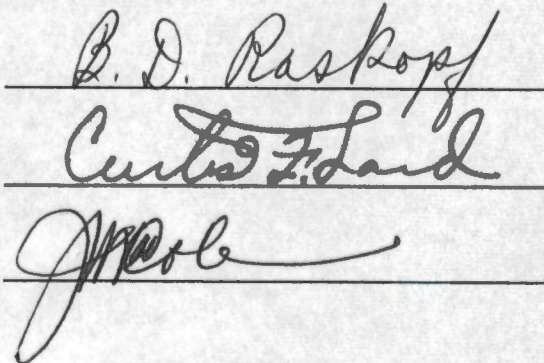 B. D. Raskopf
Curtis F. Lard